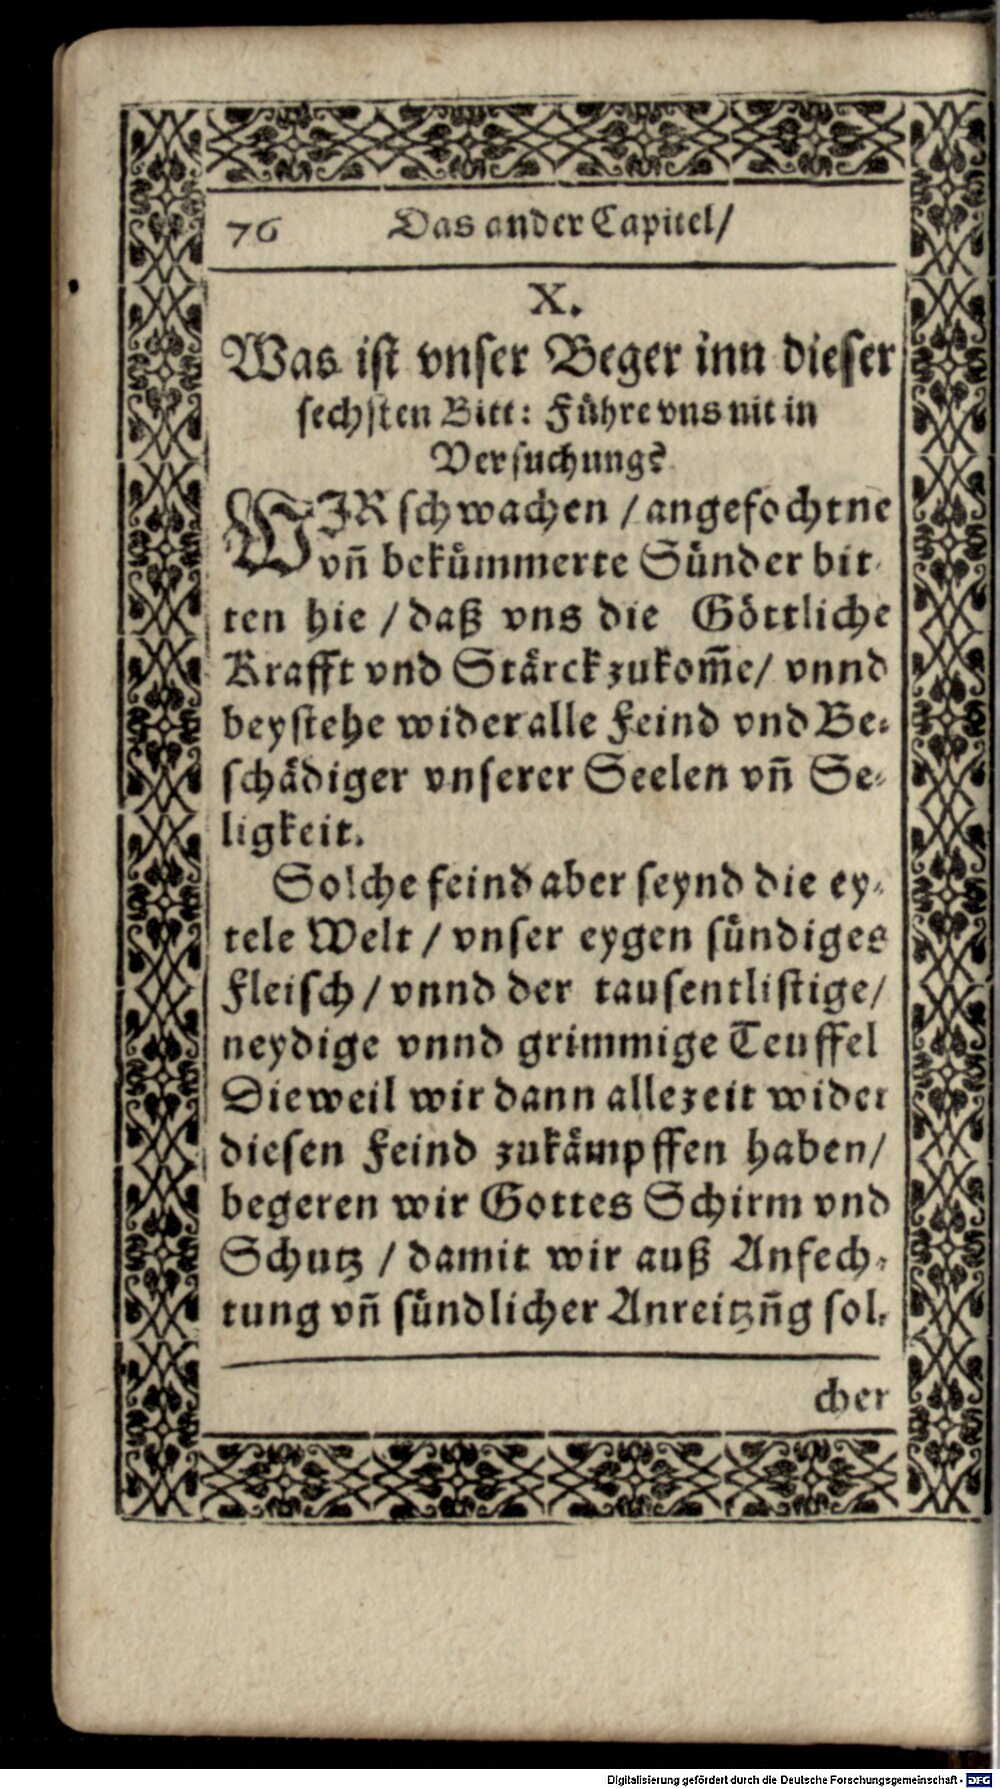 76 Das ander Capitel/
X.
Was ist vnser Beger inn dieser
sechsten Bitt: Fuͤhre vns nit in
Versuchung?
WIR schwachen / angefochtne
vñ bekuͤmmerte Suͤnder bit-
ten hie / daß vns die Goͤttliche
Krafft vnd Staͤrck zukom̃e/ vnnd
beystehe wider alle Feind vnd Be-
schaͤdiger vnserer Seelen vñ Se-
ligkeit.
Solche feind aber seynd die ey-
tele Welt / vnser eygen suͤndiges
Fleisch / vnnd der tausentlistige/
neydige vnnd grimmige Teuffel
Dieweil wir dann allezeit wider
diesen Feind zukaͤmpffen haben/
begeren wir Gottes Schirm vnd
Schutz / damit wir auß Anfech-
tung vñ suͤndlicher Anreitzñg sol-
cher
Digitalisierung gefördert durch die Deutsche Forschungsgemeinschaft - DFG